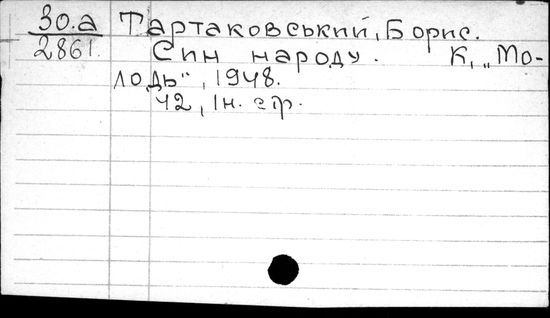 30.а Тартаковський, Борис.
2861. Син народу. К, „Мо-
лодь“, 1948.
42, 1н. стр.